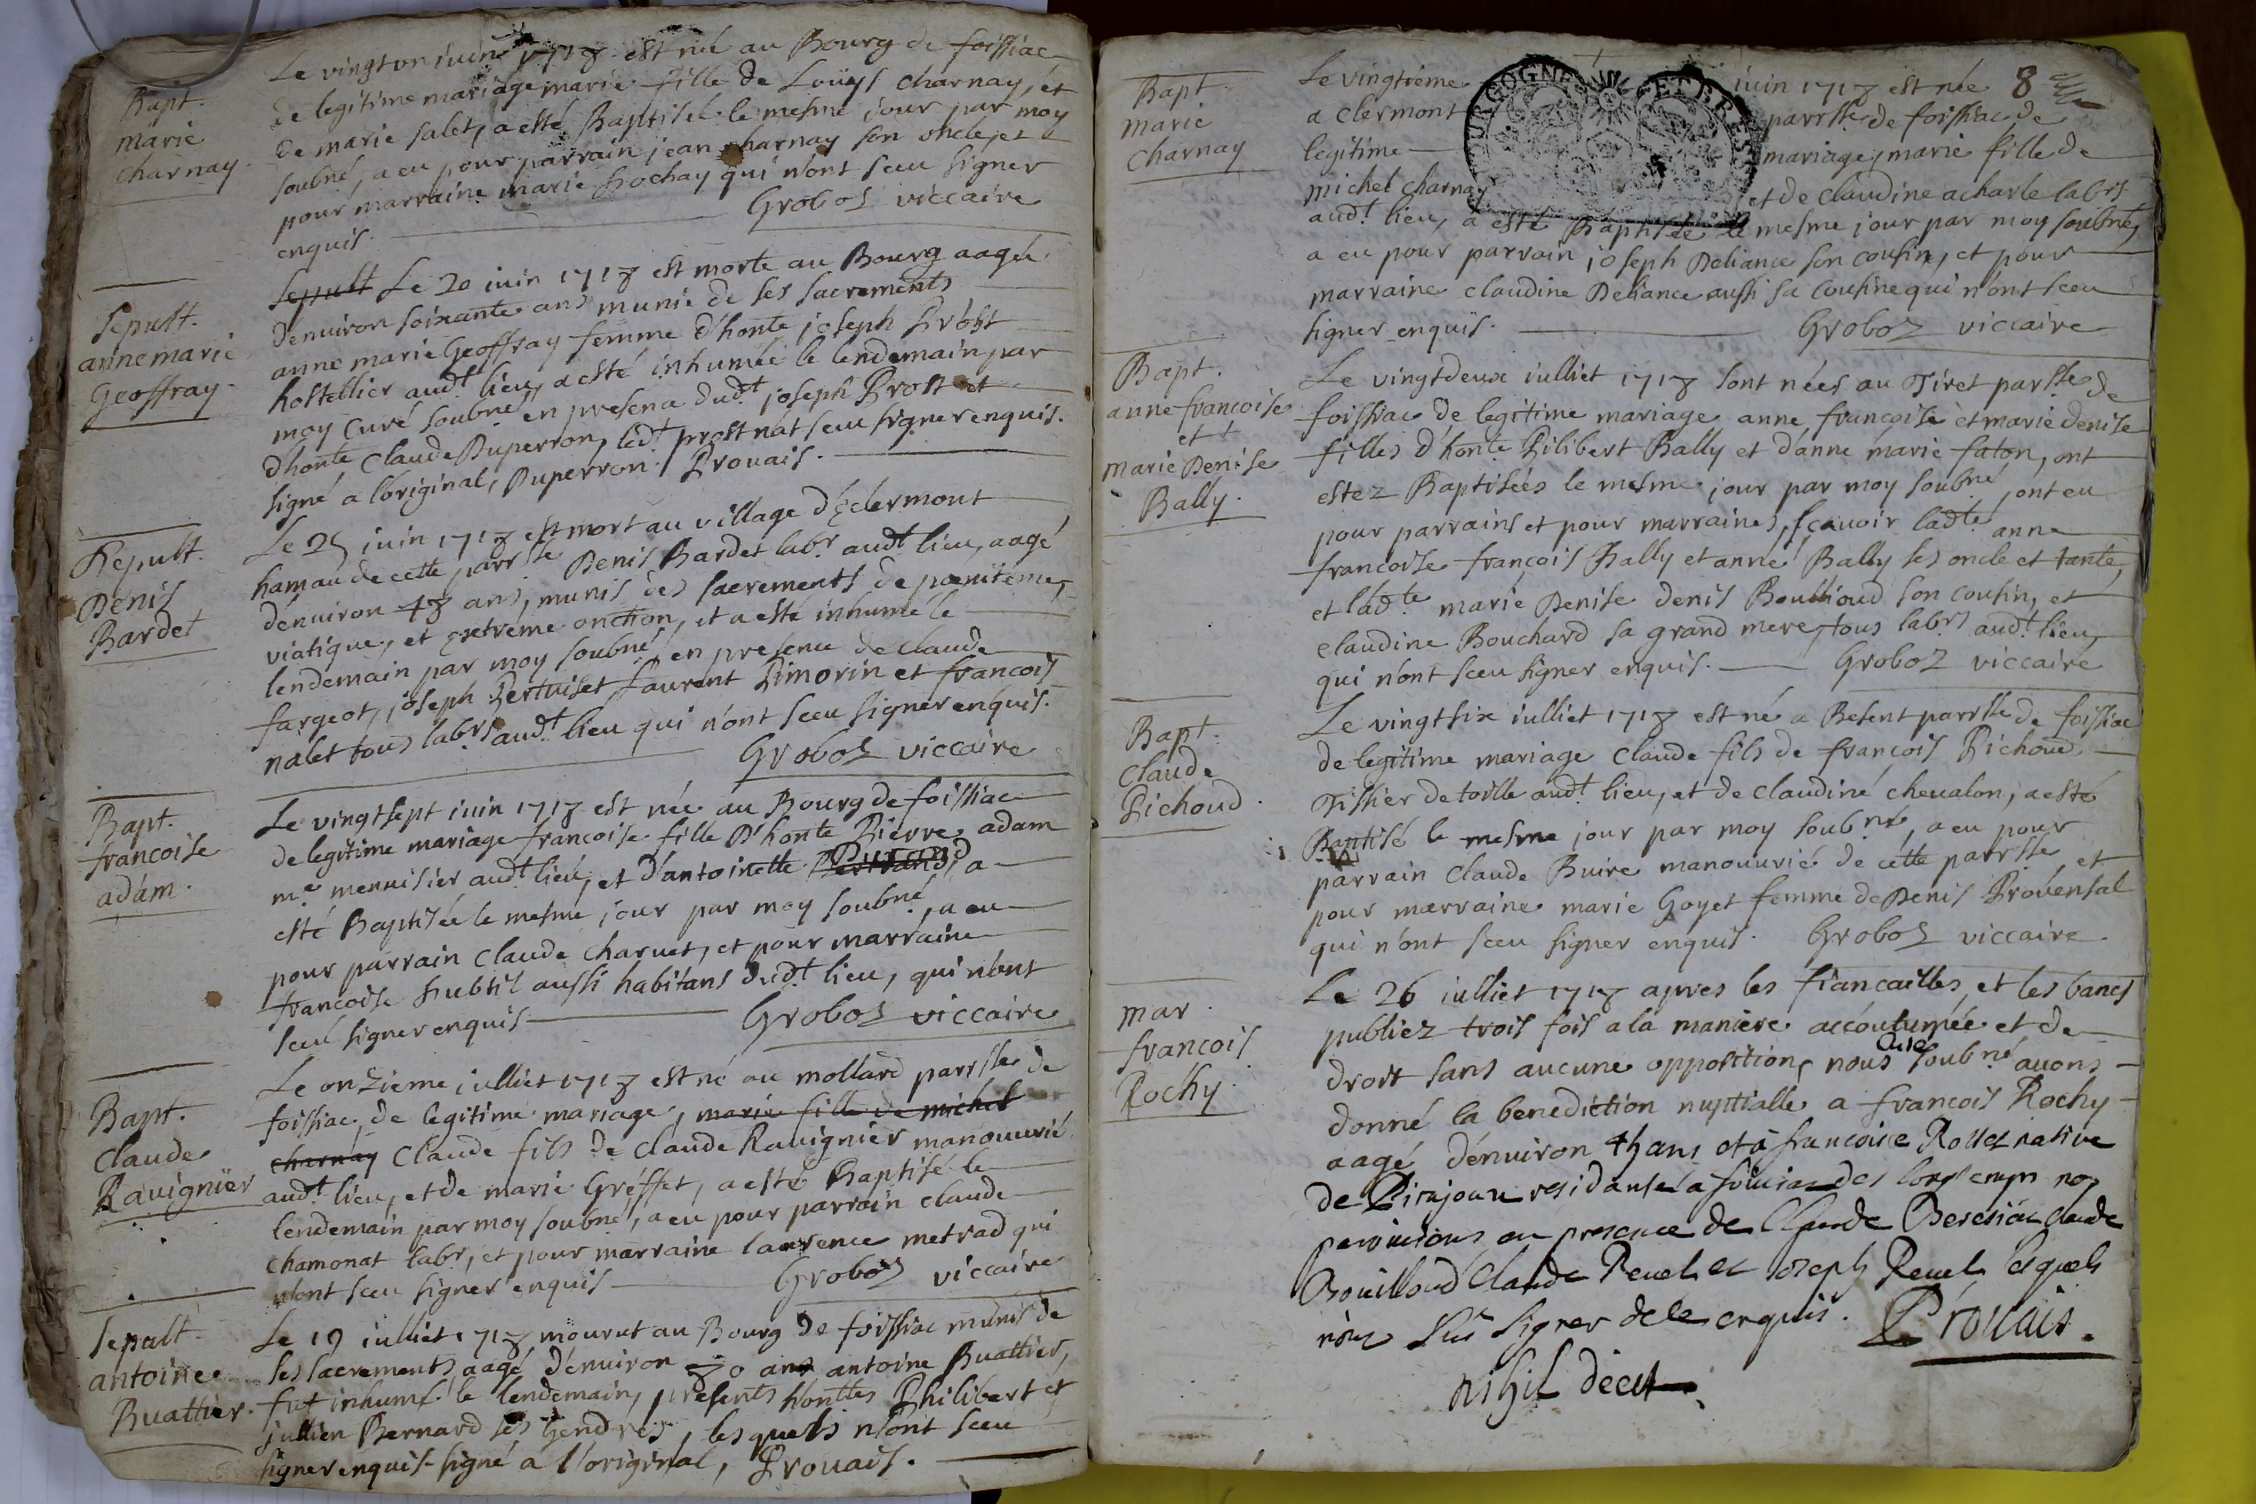 Bapt.
marie
charnay.
Le vingt on iuin 1717 est née au Bourg de foissiac
de legitime mariage marie fille de Louys charnay, et
de marie salet, a esté Baptisée le mesme iour par moy
soubné, a eu pour parrain jean charnay son oncle, et
pour marraine marie hochay qui n'ont sceu signer
enquis. Groboz viccaire
Sepult.
anne marie
Geoffray.
Sepult Le 20 iuin 1717 est morte au Bourg aagée
d'enuiron soixante ans munie de ses sacrements
anne marie Geoffray femme d'honte joseph Prost
hostellier audt lieu, a esté inhumée le lendemain par
moy Curé soubné en presence dudt joseph Prost et
d'honte Claude Duperron, ledt prost n'at sceu signer enquis.
signé a l'original, Duperron. Prouais.
Sepult.
Denis
Bardet
Le 25 iuin 1717 est mort au village d'Eclermont
hamau de cette parrsse Denis Bardet labr audt lieu, aagé
d'enuiron 47 ans, munis des sacrements de poenitence,
viatique, et extreme onction, et a esté inhumé le
lendemain par moy soubné en presence de claude
fargeot, joseph Pertuiset Laurent Pimorin et francois
nalet tous labrs audt lieu qui n'ont sceu signer enquis.
Groboz viccaire
Bapt.
francoise
adam.
Le vingt sept iuin 1717 est née au Bourg de foissiac
de legitime mariage francoise fille d'honte Pierre adam
me menuisier audt lieu, et d'antoinette, a
esté Baptisée le mesme jour par moy soubné, a eu
pour parrain Claude charuet, et pour marraine
francoise subtil aussi habitans dudt lieu, qui n'ont
sceu signer enquis Groboz viccaire
Bapt.
Claude
Rauignier
Le onzieme iulliet 1717 est né au mollard parrsse de
foissiac de legitime mariage, marie fille de michel
charnay Claude fils de Claude Rauignier manouurié
audt lieu, et de marie Gréffet, a esté Baptisé le
lendemain par moy soubné, a eu pour parrain claude
chamonat labr, et pour marraine laurence metrad qui
n'ont sceu signer enquis Groboz viccaire
Sepult.
antoine
Buattier.
Le 19 iulliet 1717 mourut au Bourg de foissiac munis de
ses sacrements aagé d'enuiron 70 ans antoine Buattier,
fut inhumé le lendemain, presents hontes Philibert et
jullien Bernard ses gendres, lesquels n'ont sceu
signer enquis signé a l'original, Prouais.
8
Bapt
marie
charnay
Le vingtieme iuin 1717 est née
a clermont parrsse de foissiac de
legitime mariage, marie fille de
michel charnay et de Claudine acharle labrs
audt lieu, a esté Baptisée le mesme jour par moy soubné,
a eu pour parrain joseph Deliance son cousin, et pour
marraine claudine Deliance aussi sa Cousine qui n'ont sceu
signer enquis. Groboz viccaire
BOURGOGNE ET BRESSE
Bapt.
anne francoise
et
marie Denise
Bally.
Le vingt deux iulliet 1717 sont nées au Tiret parrsse de
foissiac de legitime mariage anne francoise et marie denise
filles d'honte Pilibert Bally et d'anne marie faton, ont
estez Baptisées le mesme jour par moy soubné, ont eu
pour parrains et pour marraines, sçauoir ladte anne
francoise francois Bally et anne Bally ses oncle et tante,
et ladte marie Denise denis Boullioud son cousin, et
claudine Bouchard sa grand mere, tous labrs audt lieu,
qui n'ont sceu signer enquis. Groboz viccaire
Bapt.
Claude
Pichoud.
Le vingt six iulliet 1717 est né a Besent parrsse de foissiac
de legitime mariage Claude fils de francois Pichoud
Tissier de toille audt lieu, et de claudine cheualon, a esté
Baptisé le mesme jour par moy soubné, a eu pour
parrain Claude Buire manouurié de cette parrsse et
pour marraine marie Goyet femme de Denis Prouensal
qui n'ont sceu signer enquis. Groboz viccaire.
mar.
francois
Rochy.
Le 26 iulliet 1717 apres les fiancailles, et les bancs
publiez trois fois a la maniere accoutumée et de
droit sans aucune opposition, nous Curé soubné auons
donné la benediction nuptialle a francois Rochy
aagé d'enuiron 45 ans et a francoise Rollet natiue
de Pirajoux
en presence de Claude Beresiac Claude
Bouilloud Claude Reuel et Joseph Reuel lesquels
n'ont sceu signer de ce enquis. Prouais.
nihil deest.